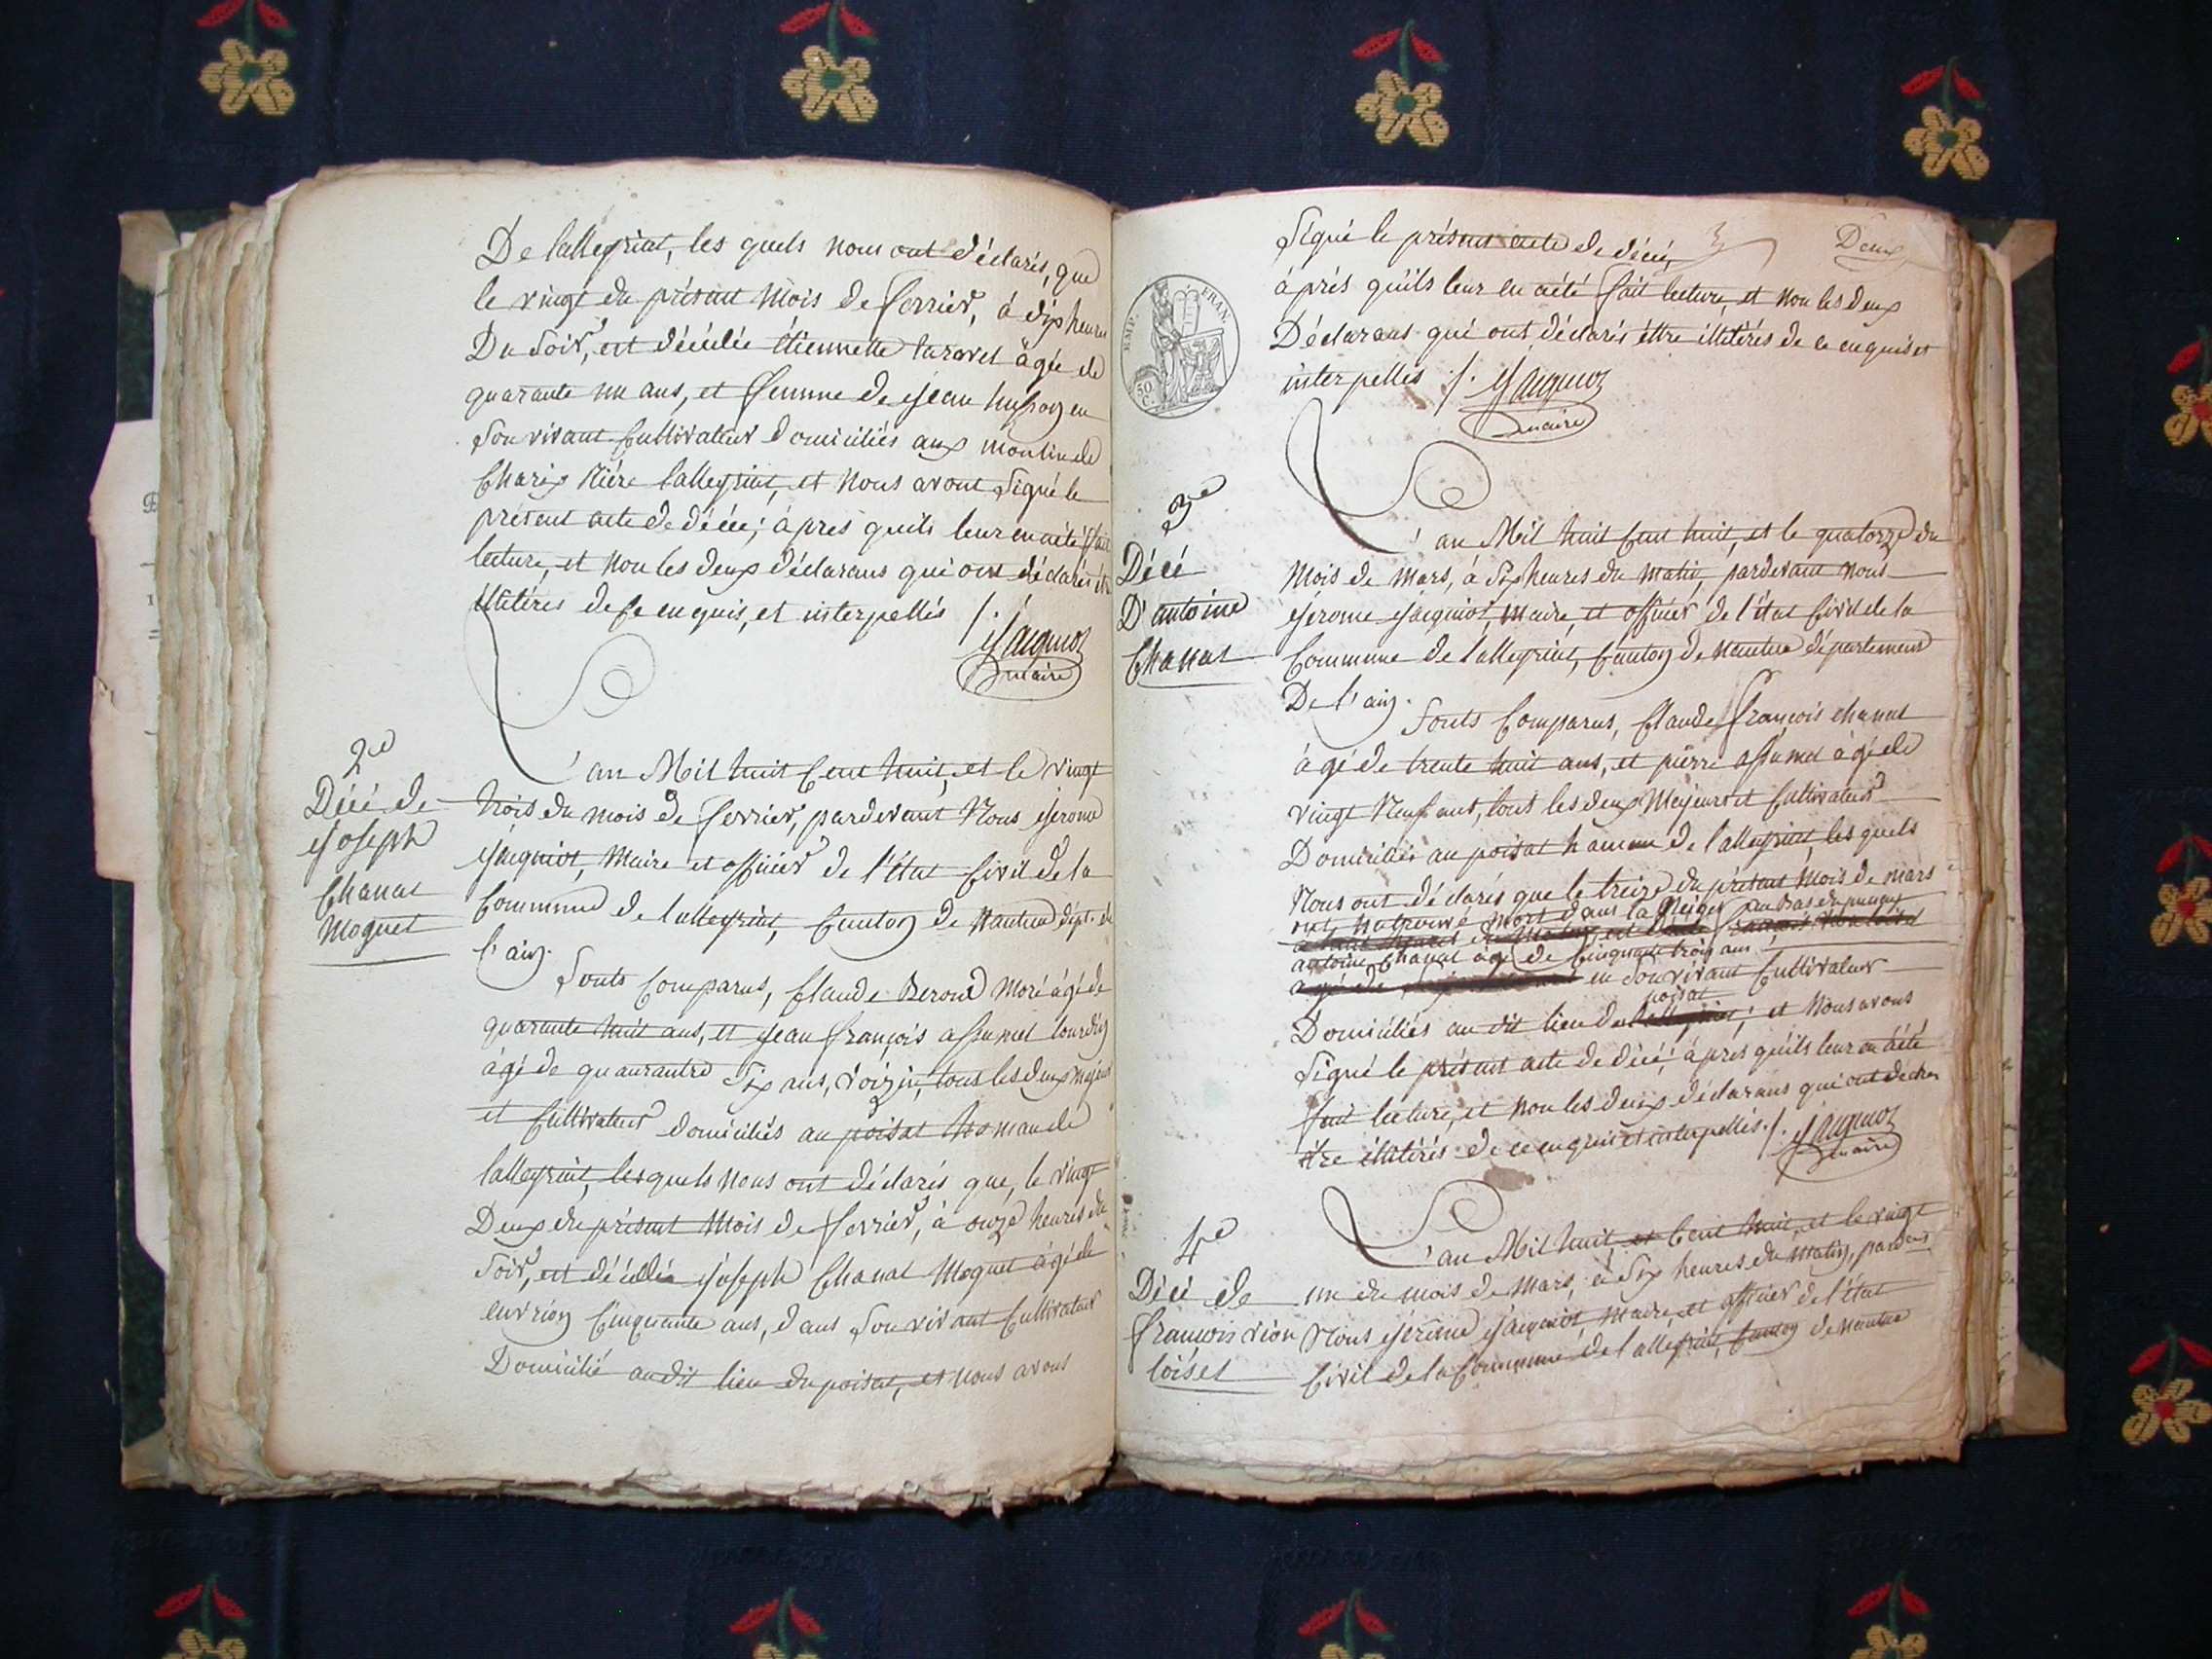 De lalleyriat, les quels nous ont déclarés, que
le vingt du présent mois de ferrier, à dix heures
Du Soir, est décédée étiennette turavet âgée de
quarante un ans, et femme de jean hussoy en
Son vivant Cultivateur domiciliés aux moulin de
Charix Rière lalleyriat, et Nous avont Signé le
présent acte de décée; à pres quils leur en aété fait
lecture, et Non les deux déclarans qui ont déclarés être
illitérés de ce enquis, et interpellés /. Jacquiot
maire
2e
Décé de
Joseph
Chanat
Moquet
L'an Mil huit Cent huit, et le vingt
trois du mois de ferrier, pardevant Nous jérome
jacquiot, Maire et officier de l'état Civil de la
Commune de lalleyriat, Canton de Nantua dépt. de
l'ain.
Sonts Comparus, Claude Beroud Moré âgé de
quarante huit ans, et jean françois assumet tourdin
âgé de quaurantre Six ans, voizin, tous les deux majeurs
et Cultivateur domiciliés au poisat hamau de
lalleyriat, lesquels nous ont déclarés que, le vingt
Deux du présent Mois de ferrier, à onze heures du
Soir, est décédée joseph Chanat Moquet âgé de
envrion Cinquante ans, dans Son vivant Cultivateur
Domicilié au dit lieu du poisat, et nous avons
Deux
Signé le présent acte de décée,
à prés quils leur en aété fait lecture, et non les deux
Déclarans qui ont déclarés êttre illitérés de ce enquis et
interpellés /. Jacquiot
maire
EMP. FRAN.
50 C.
3e
Décé
D'antoine
Chanat
L'an Mil huit Cent huit, et le quatorze du
Mois de Mars, à Six heures du matin, pardevant nous
jérome jacquiot, Maire, et officier de l'état Civil de la
Commune de lalleyriat, Canton de nantua département
De l'ain.
Sonts Comparus, Claude françois chanat
âgé de trente huit ans, et pierre assumet âgé de
vingt Neuf ans, tous les deux Majeurs et Cultivateur
Domiciliés au poisat hameau de lalleyriat, les quels
Nous ont déclarés que le treize du présent Mois de mars
mort dans la Neige au bas du
antoine Chanat agé de Cinquante trois ans
en Son vivant Cultivateur
poisat
Domiciliés au dit lieu du ; et Nous avons
Signé le présent acte de décé; à prés quils leur en àété
fait lecture, et non les deux déclarans qui ont declarés
être illitérés de ce enquis et interpellés /. Jacquiot
maire
4e
Décé de
françois vion
loiset
L'an Mil huit, et Cent huit, et le vingt
un du mois de Mars, à Six heures du matin, pardevt
Nous jérôme jacquiot, Maire, et officier de l'état
Civil de la Commune de lalleyriat, Canton de nantua